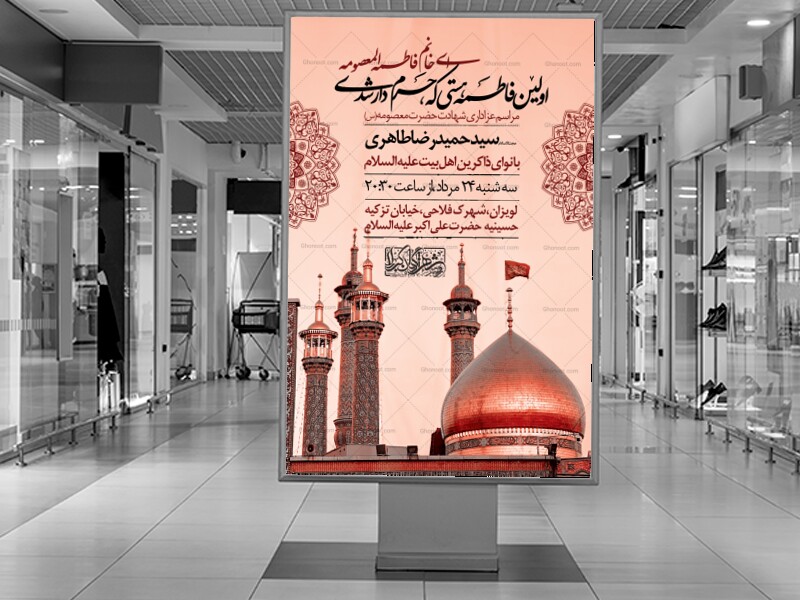 ای خانم فاطمة المعصومه
اولین فاطمه هستی که حرم دار شدی
مراسم عزاداری شهادت حضرت معصومه(س)
سیدحمیدرضاطاهری
بانوای ذاکرین اهل بیت علیه السلام
سه شنبه ۲۴ مرداد، از ساعت ۲۰:۳۰
لویزان، شهرک فلاحی، خیابان تزکیه
حسینیه حضرت علی اکبر علیه السلام
Ghonoot.com